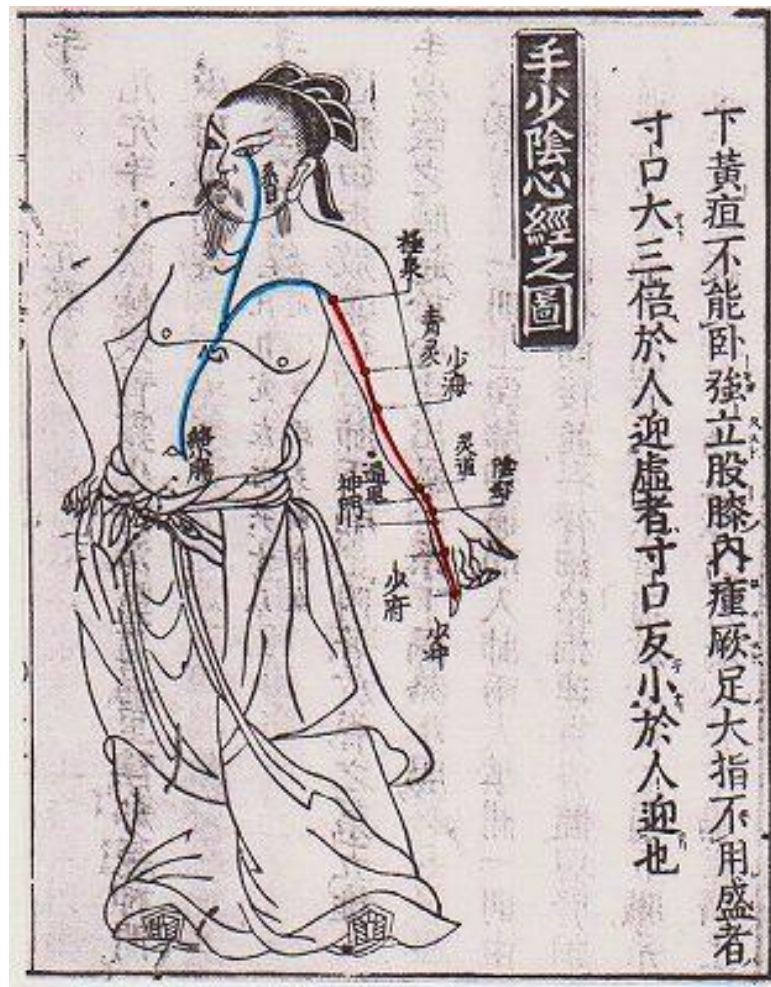 下黃疸不能卧強立股膝內瘇厥足大指不用盛者
寸口大三倍於人迎虛者寸口反小於人迎也
手少陰心經之圖
系目
心
極泉
青灵
少海
灵道
陰郄
通里
神門
少府
少冲
絡腸